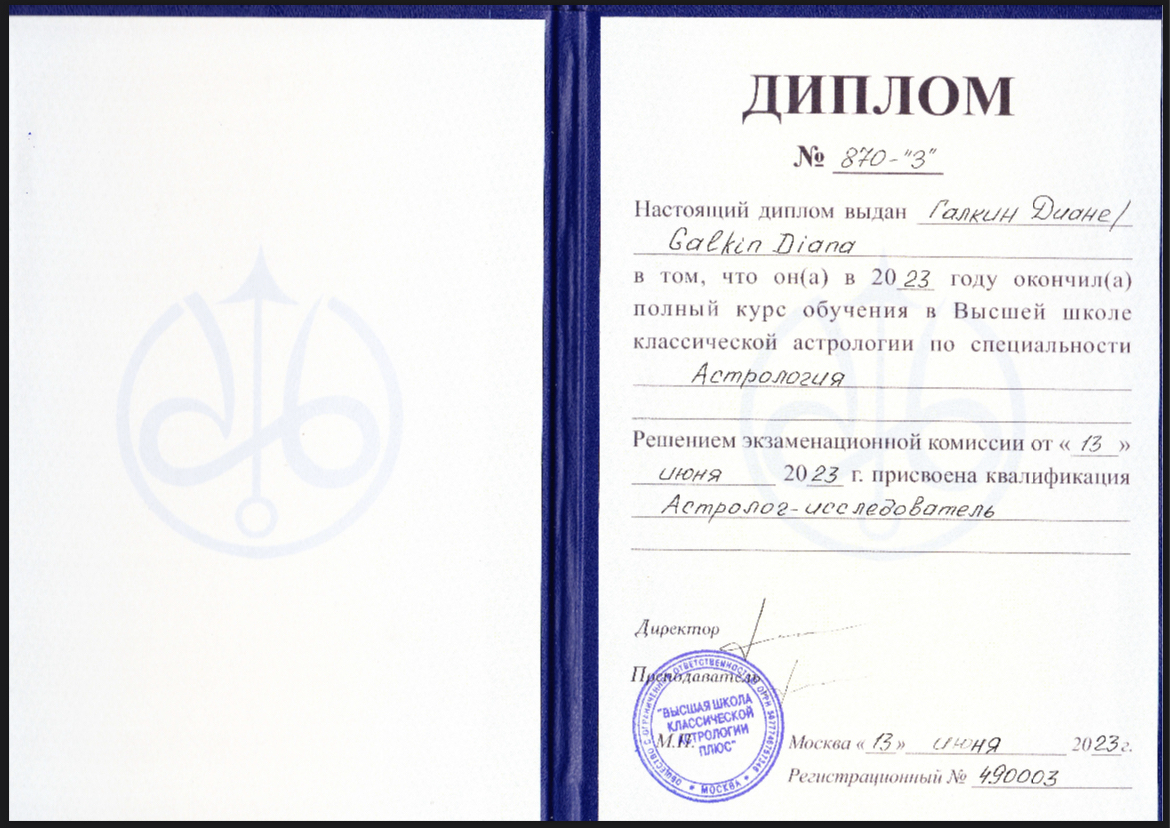 ДИПЛОМ
№ 870-"З"
Настоящий диплом выдан Галкин Диане/
Galkin Diana
в том, что он(а) в 2023 году окончил(а)
полный курс обучения в Высшей школе
классической астрологии по специальности
Астрология
Решением экзаменационной комиссии от «13»
июня 2023 г. присвоена квалификация
Астролог-исследователь
Директор
Преподаватель
М.П.
ОБЩЕСТВО С ОГРАНИЧЕННОЙ ОТВЕТСТВЕННОСТЬЮ ОГРН
"ВЫСШАЯ ШКОЛА
КЛАССИЧЕСКОЙ
АСТРОЛОГИИ
ПЛЮС"
* МОСКВА *
Москва «13» июня 2023г.
Регистрационный № 490003